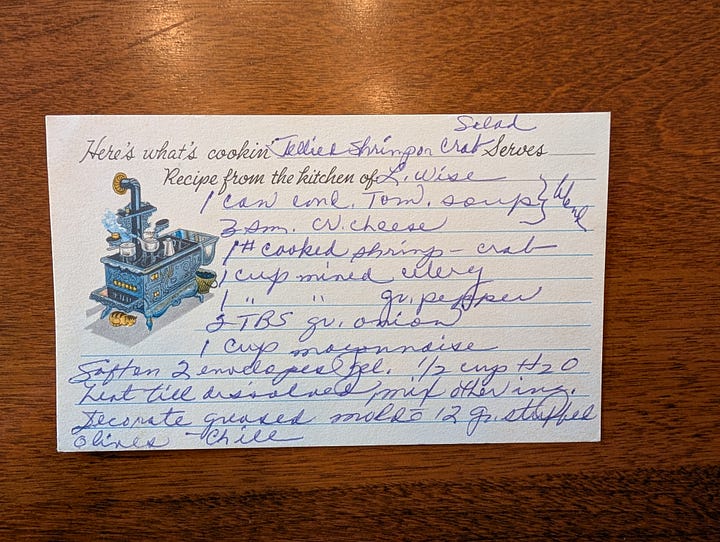 Salad
Here's what's cookin' Jellied Shrimp or Crab Serves
Recipe from the kitchen of L. Wise
1 can cond. Tom. soup } Blend
3 sm. cr. cheese
1# cooked shrimp - crab
1 cup minced celery
1 " " gr. pepper
2 TBS gr. onion
1 cup mayonnaise
Soften 2 envelopes gel. 1/2 cup H2O
heat till dissolved, mix other ing.
Decorate greased mold = 12 gr. stuffed
olives - Chill